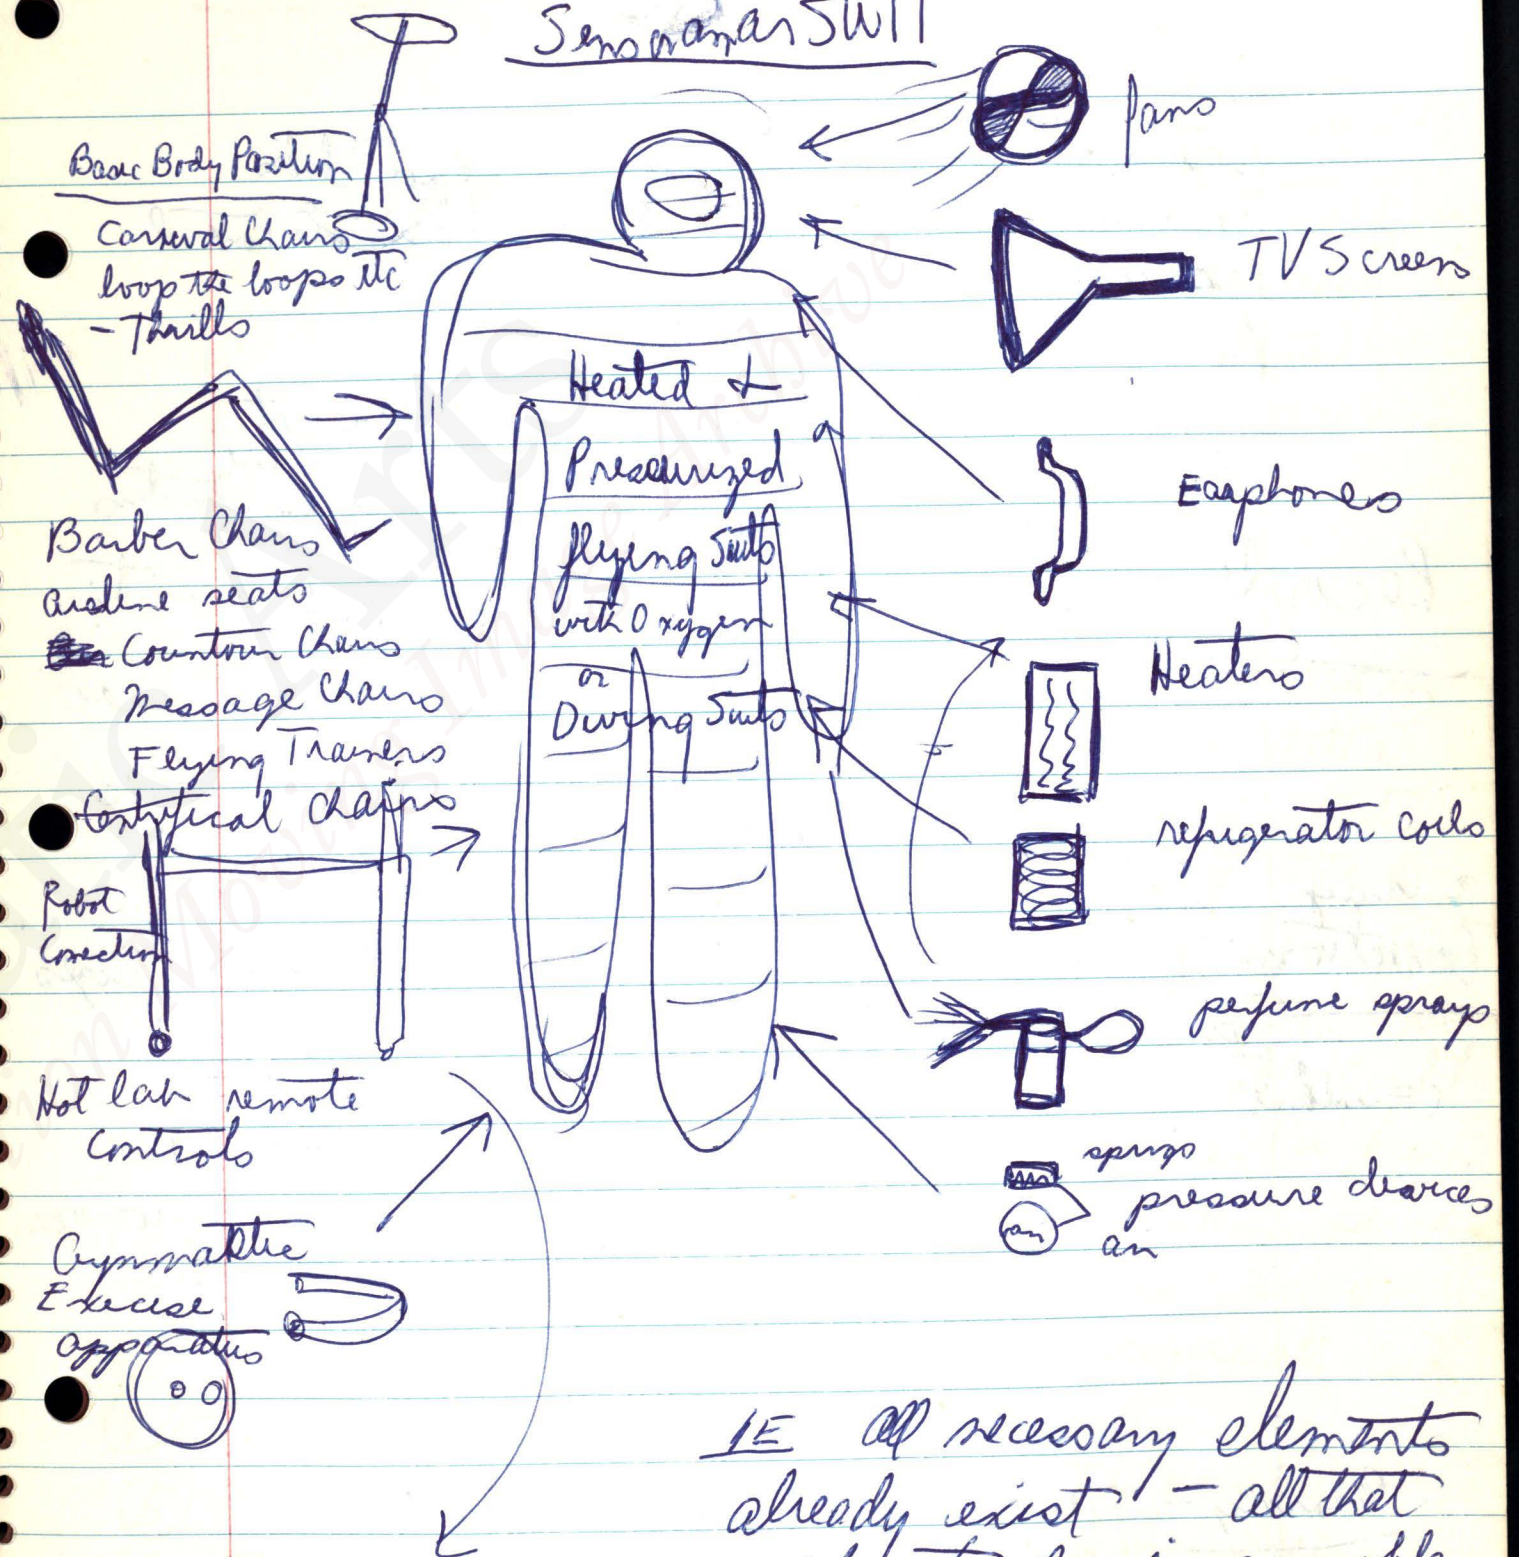 Sensorama Suit
Basic Body Position
Carneval Chairs
loop the loops etc
- Thrills
Barber Chairs
airline seats
Countour Chairs
Message Chairs
Flying Trainers
Centrifical Chairs
Robot
Conection
Hot lab remote
Controls
Gymnastic
Execise
apparatus
Heated &
Presurized
flying Suits
with Oxygen
or
Diving Suits
fans
TV Screens
Earphones
Heaters
refrigerator coils
perfume sprays
springs
pressure devices
air
air
IE all necessary elements
already exist - all that